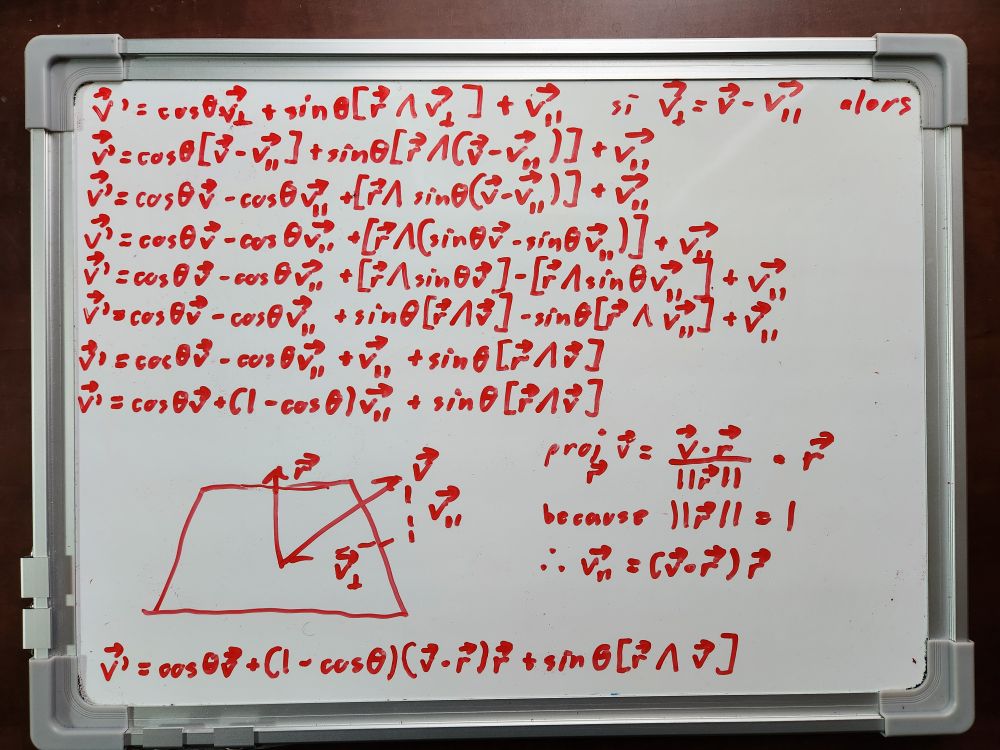 v⃗' = cosθ v⃗⊥ + sinθ[r⃗ ∧ v⃗⊥] + v⃗∥ si v⃗⊥ = v⃗ - v⃗∥ alors
v⃗' = cosθ[v⃗ - v⃗∥] + sinθ[r⃗ ∧ (v⃗ - v⃗∥)] + v⃗∥
v⃗' = cosθv⃗ - cosθv⃗∥ + [r⃗ ∧ sinθ(v⃗ - v⃗∥)] + v⃗∥
v⃗' = cosθv⃗ - cosθv⃗∥ + [r⃗ ∧ (sinθv⃗ - sinθv⃗∥)] + v⃗∥
v⃗' = cosθv⃗ - cosθv⃗∥ + [r⃗ ∧ sinθv⃗] - [r⃗ ∧ sinθv⃗∥] + v⃗∥
v⃗' = cosθv⃗ - cosθv⃗∥ + sinθ[r⃗ ∧ v⃗] - sinθ[r⃗ ∧ v⃗∥] + v⃗∥
v⃗' = cosθv⃗ - cosθv⃗∥ + v⃗∥ + sinθ[r⃗ ∧ v⃗]
v⃗' = cosθv⃗ + (1 - cosθ)v⃗∥ + sinθ[r⃗ ∧ v⃗]
proj_r⃗ v⃗ = (v⃗ · r⃗)/||r⃗|| · r⃗
because ||r⃗|| = 1
∴ v⃗∥ = (v⃗ · r⃗) r⃗
r⃗
v⃗
v⃗∥
v⃗⊥
v⃗' = cosθv⃗ + (1 - cosθ)(v⃗ · r⃗)r⃗ + sinθ[r⃗ ∧ v⃗]